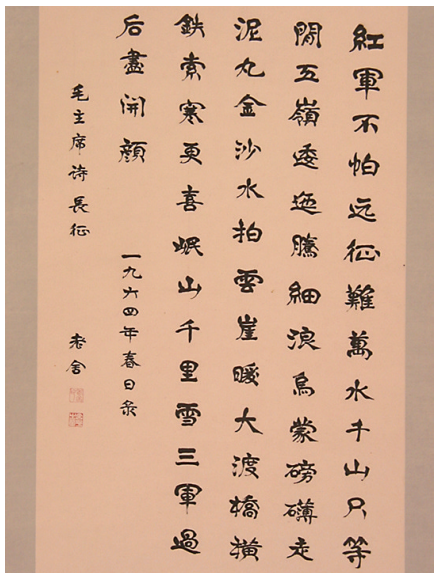 紅軍不怕远征難萬水千山只等
閒五嶺逶迤騰細浪烏蒙磅礴走
泥丸金沙水拍雲崖暖大渡橋橫
鉄索寒更喜岷山千里雪三軍過
后盡開顏
一九六四年春日录
毛主席诗長征
老舍